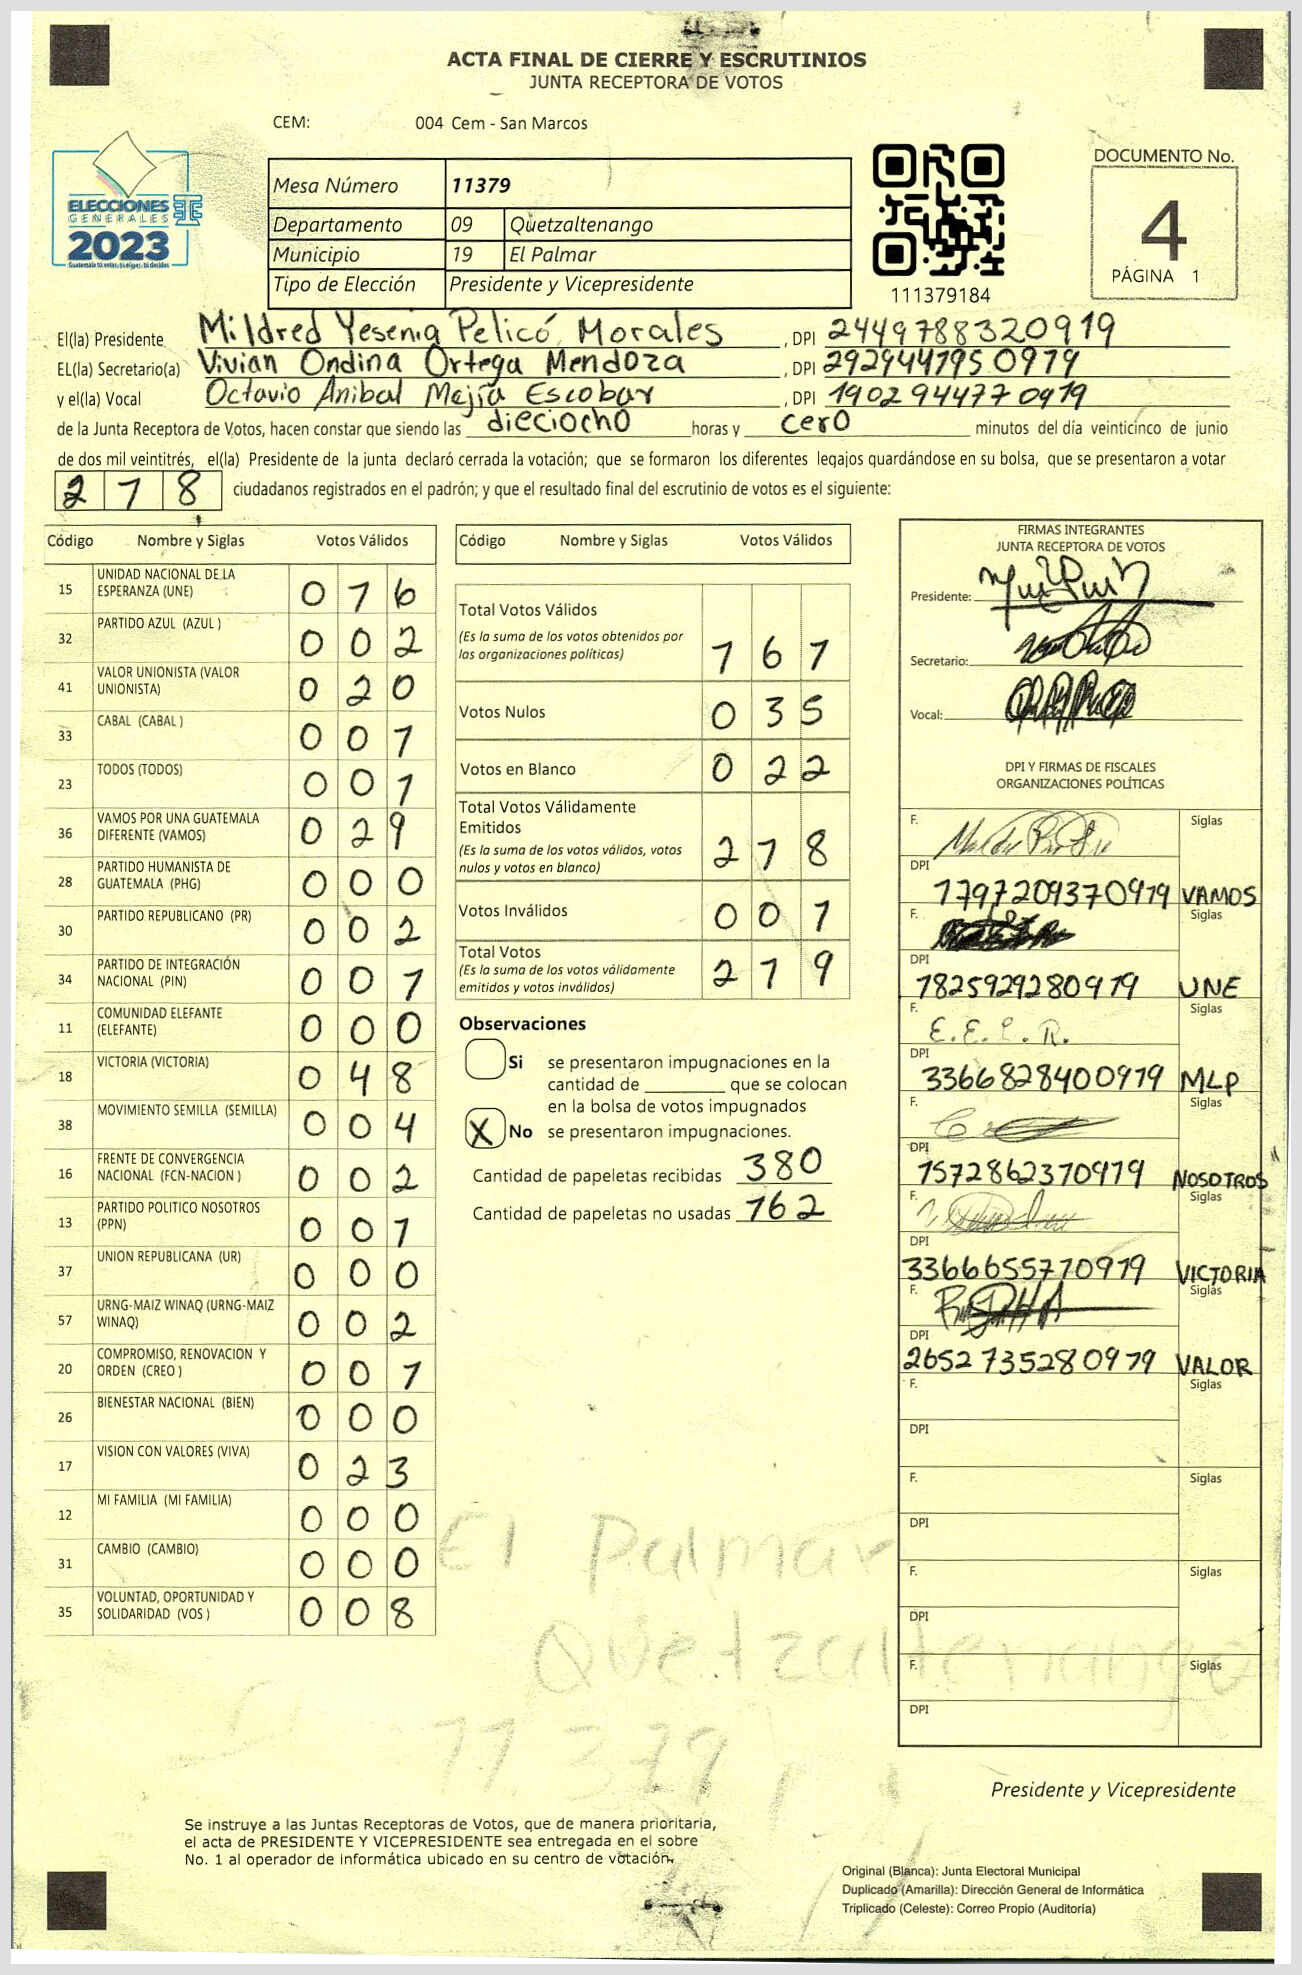 ACTA FINAL DE CIERRE Y ESCRUTINIOS
JUNTA RECEPTORA DE VOTOS
CEM: 004 Cem - San Marcos
ELECCIONES
GENERALES
2023
Mesa Número 11379
Departamento 09 Quetzaltenango
Municipio 19 El Palmar
Tipo de Elección Presidente y Vicepresidente
111379184
DOCUMENTO No.
4
PÁGINA 1
El(la) Presidente Mildred Yesenia Pelicó Morales , DPI 2449788320919
EL(la) Secretario(a) Vivian Ondina Ortega Mendoza , DPI 2929447950919
y el(la) Vocal Octavio Anibal Mejía Escobar , DPI 1902944770919
de la Junta Receptora de Votos, hacen constar que siendo las dieciocho horas y cero minutos del día veinticinco de junio
de dos mil veintitrés, el(la) Presidente de la junta declaró cerrada la votación; que se formaron los diferentes legajos guardándose en su bolsa, que se presentaron a votar
278 ciudadanos registrados en el padrón; y que el resultado final del escrutinio de votos es el siguiente:
Código Nombre y Siglas Votos Válidos
15 UNIDAD NACIONAL DE LA ESPERANZA (UNE) 0 7 6
32 PARTIDO AZUL (AZUL ) 0 0 2
41 VALOR UNIONISTA (VALOR UNIONISTA) 0 2 0
33 CABAL (CABAL ) 0 0 1
23 TODOS (TODOS) 0 0 1
36 VAMOS POR UNA GUATEMALA DIFERENTE (VAMOS) 0 2 9
28 PARTIDO HUMANISTA DE GUATEMALA (PHG) 0 0 0
30 PARTIDO REPUBLICANO (PR) 0 0 2
34 PARTIDO DE INTEGRACIÓN NACIONAL (PIN) 0 0 1
11 COMUNIDAD ELEFANTE (ELEFANTE) 0 0 0
18 VICTORIA (VICTORIA) 0 4 8
38 MOVIMIENTO SEMILLA (SEMILLA) 0 0 4
16 FRENTE DE CONVERGENCIA NACIONAL (FCN-NACION ) 0 0 2
13 PARTIDO POLITICO NOSOTROS (PPN) 0 0 1
37 UNION REPUBLICANA (UR) 0 0 0
57 URNG-MAIZ WINAQ (URNG-MAIZ WINAQ) 0 0 2
20 COMPROMISO, RENOVACION Y ORDEN (CREO ) 0 0 1
26 BIENESTAR NACIONAL (BIEN) 0 0 0
17 VISION CON VALORES (VIVA) 0 2 3
12 MI FAMILIA (MI FAMILIA) 0 0 0
31 CAMBIO (CAMBIO) 0 0 0
35 VOLUNTAD, OPORTUNIDAD Y SOLIDARIDAD (VOS ) 0 0 8
Código Nombre y Siglas Votos Válidos
Total Votos Válidos
(Es la suma de los votos obtenidos por
las organizaciones políticas) 1 6 1
Votos Nulos 0 3 5
Votos en Blanco 0 2 2
Total Votos Válidamente
Emitidos
(Es la suma de los votos válidos, votos
nulos y votos en blanco) 2 7 8
Votos Inválidos 0 0 1
Total Votos
(Es la suma de los votos válidamente
emitidos y votos inválidos) 2 7 9
Observaciones
Si se presentaron impugnaciones en la
cantidad de ________ que se colocan
en la bolsa de votos impugnados
X No se presentaron impugnaciones.
Cantidad de papeletas recibidas 380
Cantidad de papeletas no usadas 162
FIRMAS INTEGRANTES
JUNTA RECEPTORA DE VOTOS
Presidente:
Secretario:
Vocal:
DPI Y FIRMAS DE FISCALES
ORGANIZACIONES POLÍTICAS
F. Siglas
DPI
1797209370919 VAMOS
F. Siglas
DPI
1825929280919 UNE
F. E.E.L.R. Siglas
DPI
3366828400919 MLP
F. Siglas
DPI
1572862370919 NOSOTROS
F. Siglas
DPI
3366655710919 VICTORIA
F. Siglas
DPI
2652735280919 VALOR
F. Siglas
DPI
F. Siglas
DPI
F. Siglas
DPI
F. Siglas
DPI
El Palmar
Quetzaltenango
11379
Presidente y Vicepresidente
Se instruye a las Juntas Receptoras de Votos, que de manera prioritaria,
el acta de PRESIDENTE Y VICEPRESIDENTE sea entregada en el sobre
No. 1 al operador de informática ubicado en su centro de votación.
Original (Blanca): Junta Electoral Municipal
Duplicado (Amarilla): Dirección General de Informática
Triplicado (Celeste): Correo Propio (Auditoría)